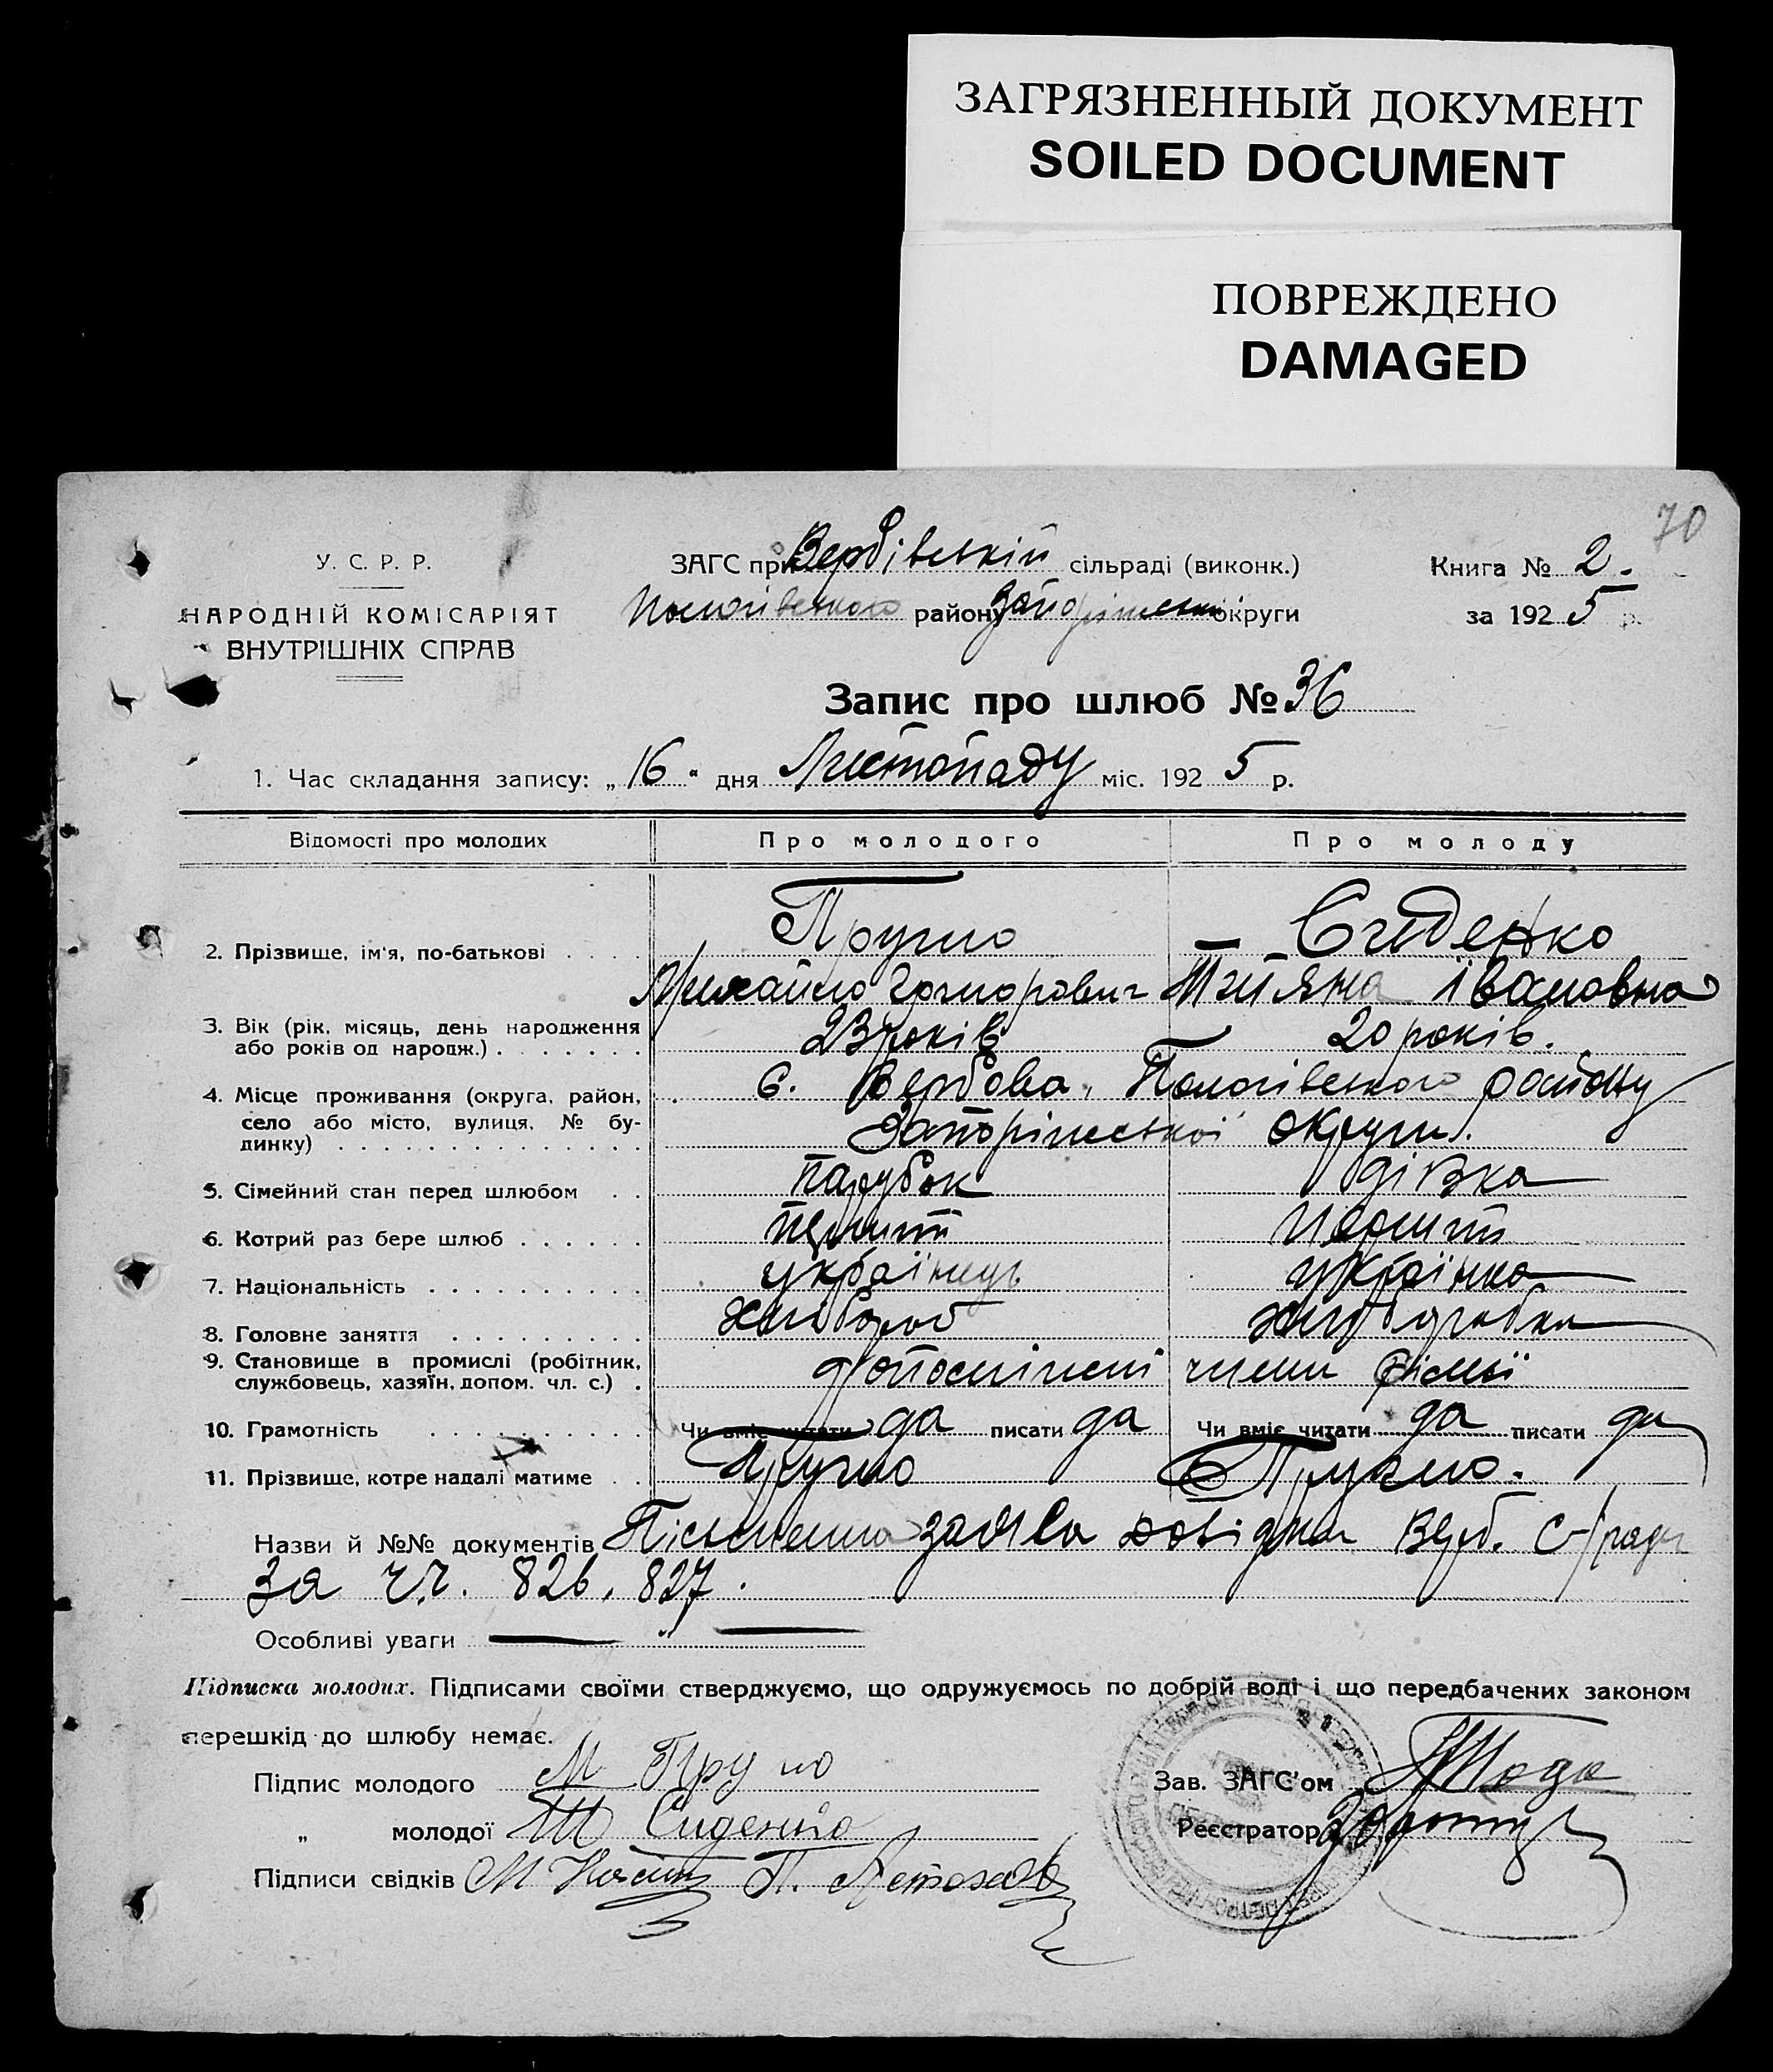 ЗАГРЯЗНЕННЫЙ ДОКУМЕНТ
SOILED DOCUMENT
ПОВРЕЖДЕНО
DAMAGED
70
У. С. Р. Р.
НАРОДНІЙ КОМІСАРІЯТ
ВНУТРІШНІХ СПРАВ
ЗАГС при Вербівській сільраді (виконк.)
Пологівського району Запоріжської округи
Книга № 2.
за 1925 р.
Запис про шлюб № 36
1. Час складання запису: „16" дня Листопаду міс. 1925 р.
Відомості про молодих Про молодого Про молоду
2. Прізвище, ім'я, по-батькові . . . . Пругло Сиденко
Михайло Григорович Тетяна Івановна
3. Вік (рік, місяць, день народження
або років од народж.) . . . . . . . 23 років 20 років.
4. Місце проживання (округа, район,
село або місто, вулиця, № бу-
динку) . . . . . . . . . . . . . . с. Вербова, Пологівського району
Запоріжської округи.
5. Сімейний стан перед шлюбом . . парубок дівка
6. Котрий раз бере шлюб . . . . . . перший перший
7. Національність . . . . . . . . . . українець українка
8. Головне заняття . . . . . . . . . хлібороб хліборобка
9. Становище в промислі (робітник,
службовець, хазяїн, допом. чл. с.) . допоміжні члени сімьї
10. Грамотність . . . . . . . . . . Чи вміє читати да писати да Чи вміє читати да писати да
11. Прізвище, котре надалі матиме . . Пругло Пругло.
Назви й №№ документів Письменна заява довідки Верб. С-/ради
за ч.ч. 826, 827.
Особливі уваги — „ —
Підписка молодих. Підписами своїми стверджуємо, що одружуємось по добрій волі і що передбачених законом
перешкід до шлюбу немає.
Підпис молодого М Пругло
„ молодої Т Сиденко
Підписи свідків М П.
Зав. ЗАГС'ом
Реєстратор